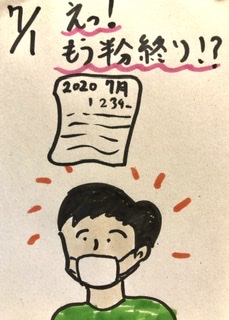 7/1
えっ!
もう半分終り!?
2020 7月
1234